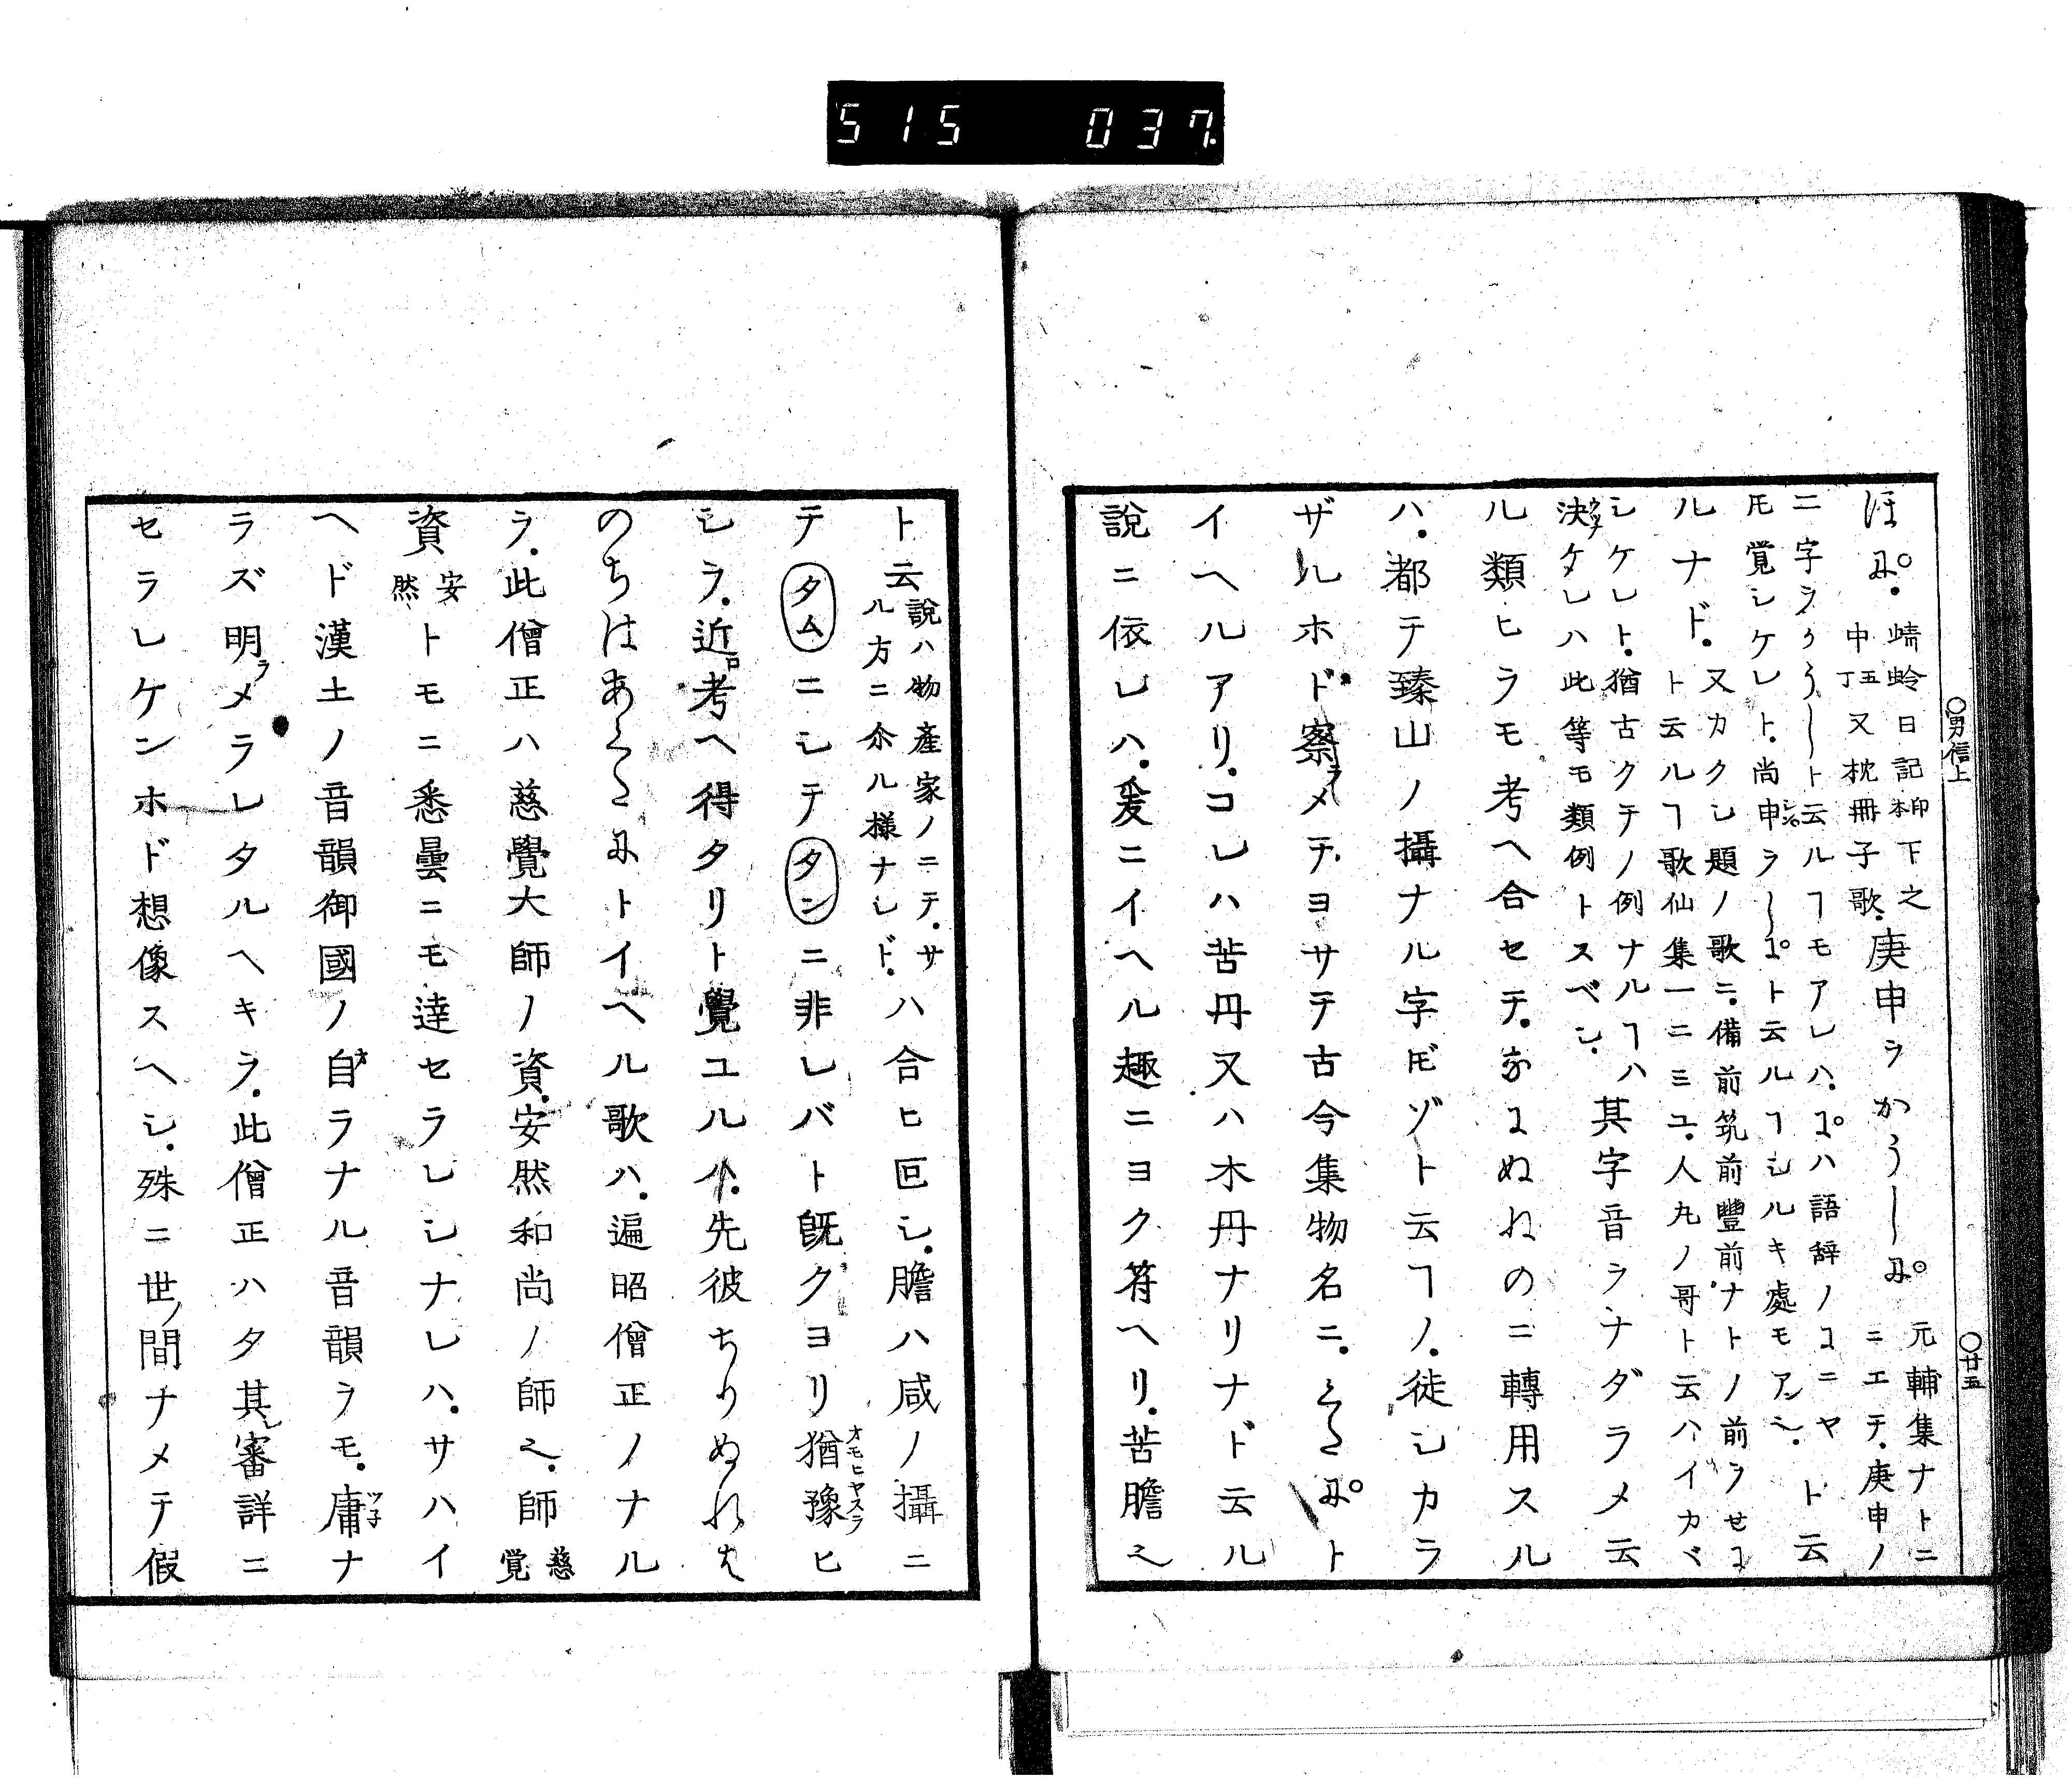 515 037
〇男信上
〇廿五
ほに゜. 蜻蛉日記印本下之
中五丁又枕冊子歌. 庚申ヲかうしに゜ 元輔集ナトニ
ニエテ. 庚申ノ
ニ字ヲかうしト云ルヿモアレハ.に゜ハ語辞ノにニヤ ト云
ルナド. 又カクし題ノ歌ニ.備前筑前豐前ナトノ前ヲせに
ト云ルヿ歌仙集一ニミユ.人丸ノ哥ト云ハイカヾ
シケレト.猶古クテノ例ナルヿハ
決メタケレハ此等モ類例トスベシ. 其字音ヲナダラメ云
ル類ヒヲモ考ヘ合セテ.なにぬねのニ轉用スル
ハ.都テ臻山ノ攝ナル字𪜈ゾト云ヿノ.徒シカラ
ザルホド.察ラメテ.ヨサテ古今集物名ニ.くたに゜ト
イヘルアリ.コレハ苦丹又ハ木丹ナリナド云ル
說ニ依レハ.爰ニイヘル趣ニヨク符ヘリ.苦膽之
ト云 說ハ物產家ノニテ.サ
ル方ニ尒ル様ナレド. ハ合ヒ叵シ.膽ハ咸ノ攝ニ
テタムニシテタンニ非レバト旣クヨリ猶豫オモヒヤスラヒ
シヲ.近ロ考ヘ得タリト覺ユルハ.先彼ちりぬれは
のちはあくたにトイヘル歌ハ.遍昭僧正ノナル
ヲ.此僧正ハ慈覺大師ノ資.安然和尚ノ師之.師慈覚
資安然トモニ悉曇ニモ達セラレシナレハ.サハイ
ヘド漢土ノ音韻御國ノ自オラナル音韻ヲモ.庸ツ子ナ
ラズ明ラメラレタルヘキヲ.此僧正ハタ其レ審詳ニ
セラレケンホド想像スヘシ.殊ニ世ノ間ナメテ假